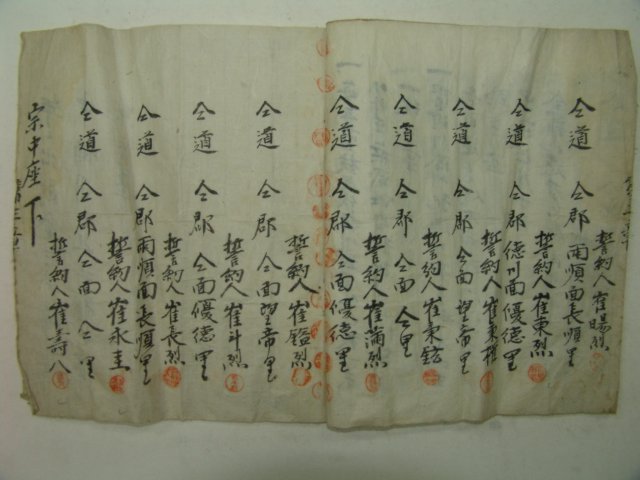 誓約人崔暘烈
仝道 仝郡 雨順面長順里
誓約人崔東烈
仝道 仝郡 德川面優德里
誓約人崔秉權
仝道 仝郡 仝面 望帝里
誓約人崔秉鉉
仝道 仝郡 仝面 仝里
誓約人崔滿烈
仝道 仝郡 仝面優德里
誓約人崔鎰烈
仝道 仝郡 仝面望帝里
誓約人崔斗烈
仝道 仝郡 仝面優德里
誓約人崔長烈
仝道 仝郡 雨順面長順里
誓約人崔永圭
仝道 仝郡 仝面 仝里
誓約人崔壽八
宗中座下